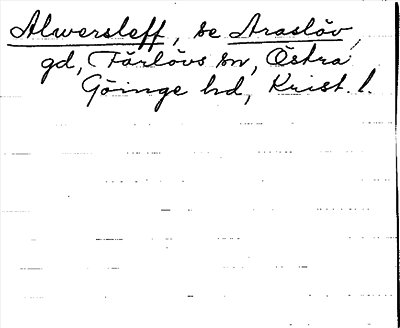 Alwersleff, se Araslöv,
gd, Färlövs sn, Östra
Göinge hd, Krist. l.